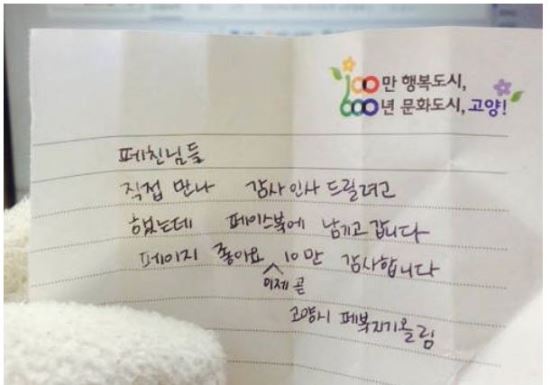 100만 행복도시,
600년 문화도시, 고양!
페친님들
직접 만나 감사인사 드릴려고
했는데 페이스북에 남기고 갑니다
페이지 좋아요 10만 감사합니다
이제 곧
고양시 페북지기올림